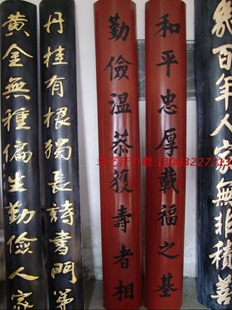 幾百年人家無非積善
和平忠厚載福之基
勤儉溫恭獲壽者相
丹桂有根獨長詩書門第
黃金無種偏生勤儉人家